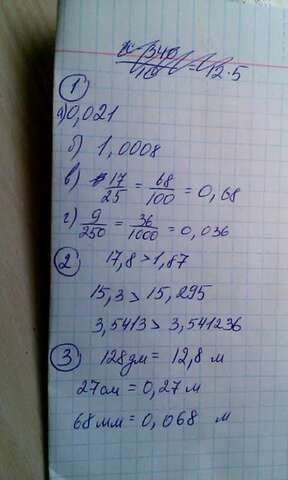 = 12.5
1
а) 0,021
б) 1,0008
в) 17/25 = 68/100 = 0,68
г) 9/250 = 36/1000 = 0,036
2 17,8 > 1,87
15,3 > 15,295
3,5413 > 3,541236
3 128дм = 12,8 м
27см = 0,27 м
68мм = 0,068 м